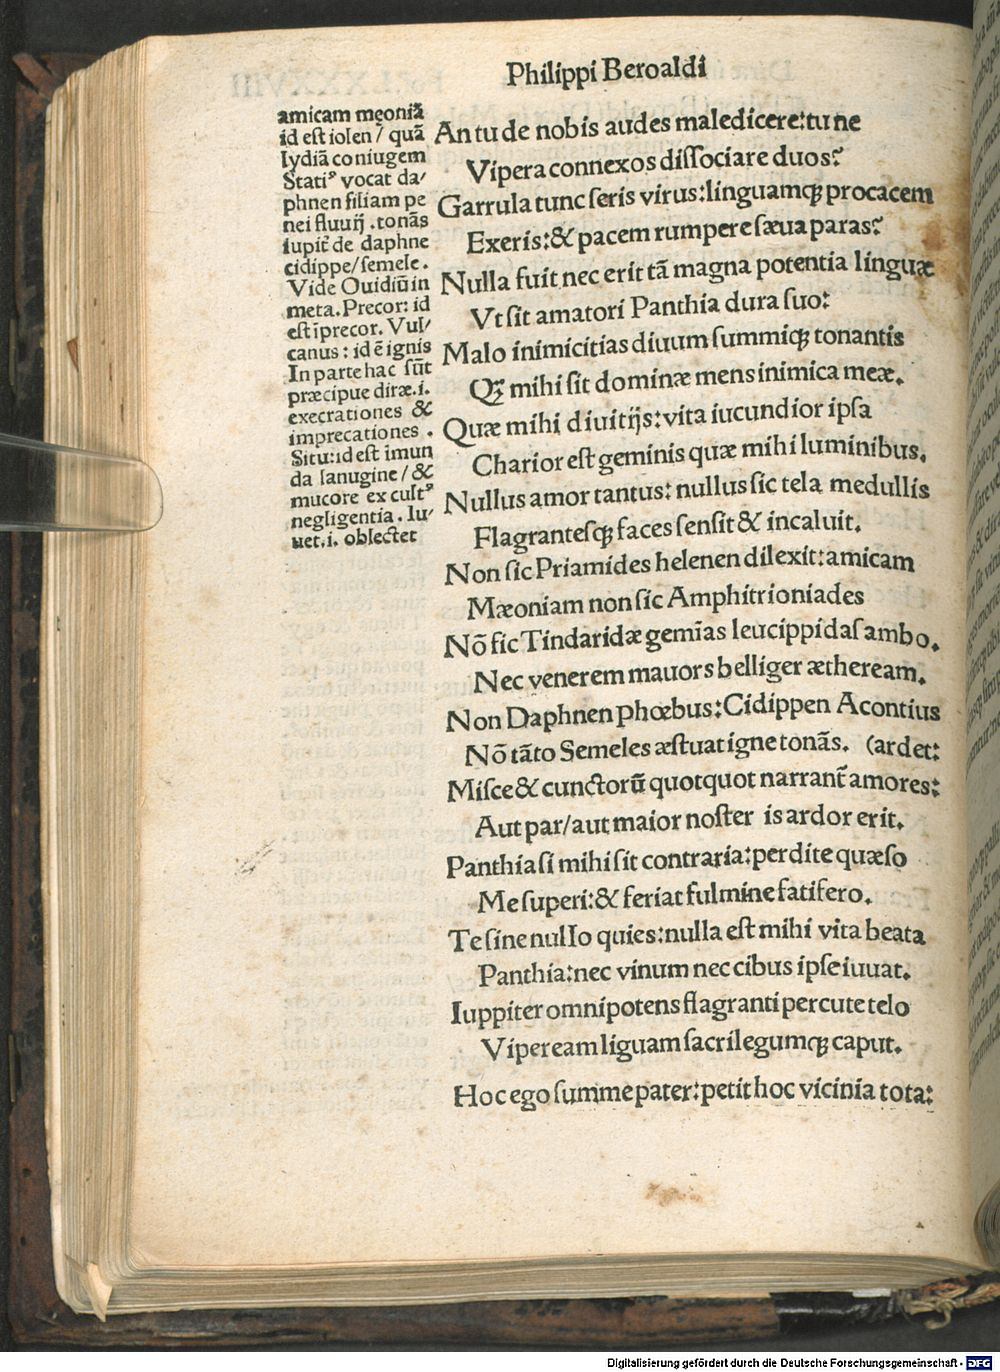 Philippi Beroaldi
amicam męoniã
id est iolen / quã
lydiã coniugem
Statiꝰ vocat da/
phnen filiam pe
nei fluuij . tonãs
iupit̃ de daphne
cidippe/semele.
Vide Ouidiũ in
meta. Precor: id
est ĩprecor. Vul/
canus : id ẽ ignis
In parte hac sũt
præcipue diræ.i.
execrationes &
imprecationes .
Situ: id est imun
da lanugine / &
mucore ex cultꝰ
negligentia . Iu/
uet.i. oblectet
An tu de nobis audes maledicere: tu ne
Vipera connexos dissociare duos?
Garrula tunc seris virus: linguamqꝫ procacem
Exeris: & pacem rumpere sæua paras?
Nulla fuit nec erit tã magna potentia linguæ
Vt sit amatori Panthia dura suo:
Malo inimicitias diuum summiqꝫ tonantis
Qꝫ mihi sit dominæ mens inimica meæ.
Quæ mihi diuitijs: vita iucundior ipsa
Charior est geminis quæ mihi luminibus.
Nullus amor tantus: nullus sic tela medullis
Flagrantesqꝫ faces sensit & incaluit.
Non sic Priamides helenen dilexit: amicam
Mæoniam non sic Amphitrioniades
Nõ sic Tindaridæ gemĩas leucippidas ambo.
Nec venerem mauors belliger ætheream.
Non Daphnen phœbus: Cidippen Acontius
Nõ tãto Semeles æstuat igne tonãs. (ardet:
Misce & cunctorũ quotquot narrant̃ amores:
Aut par/aut maior noster is ardor erit.
Panthia si mihi sit contraria: perdite quæso
Me superi: & feriat fulmine fatifero.
Te sine nullo quies: nulla est mihi vita beata
Panthia: nec vinum nec cibus ipse iuuat.
Iuppiter omnipotens flagranti percute telo
Vipeream liguam sacrilegumqꝫ caput.
Hoc ego summe pater: petit hoc vicinia tota:
Digitalisierung gefördert durch die Deutsche Forschungsgemeinschaft - DFG